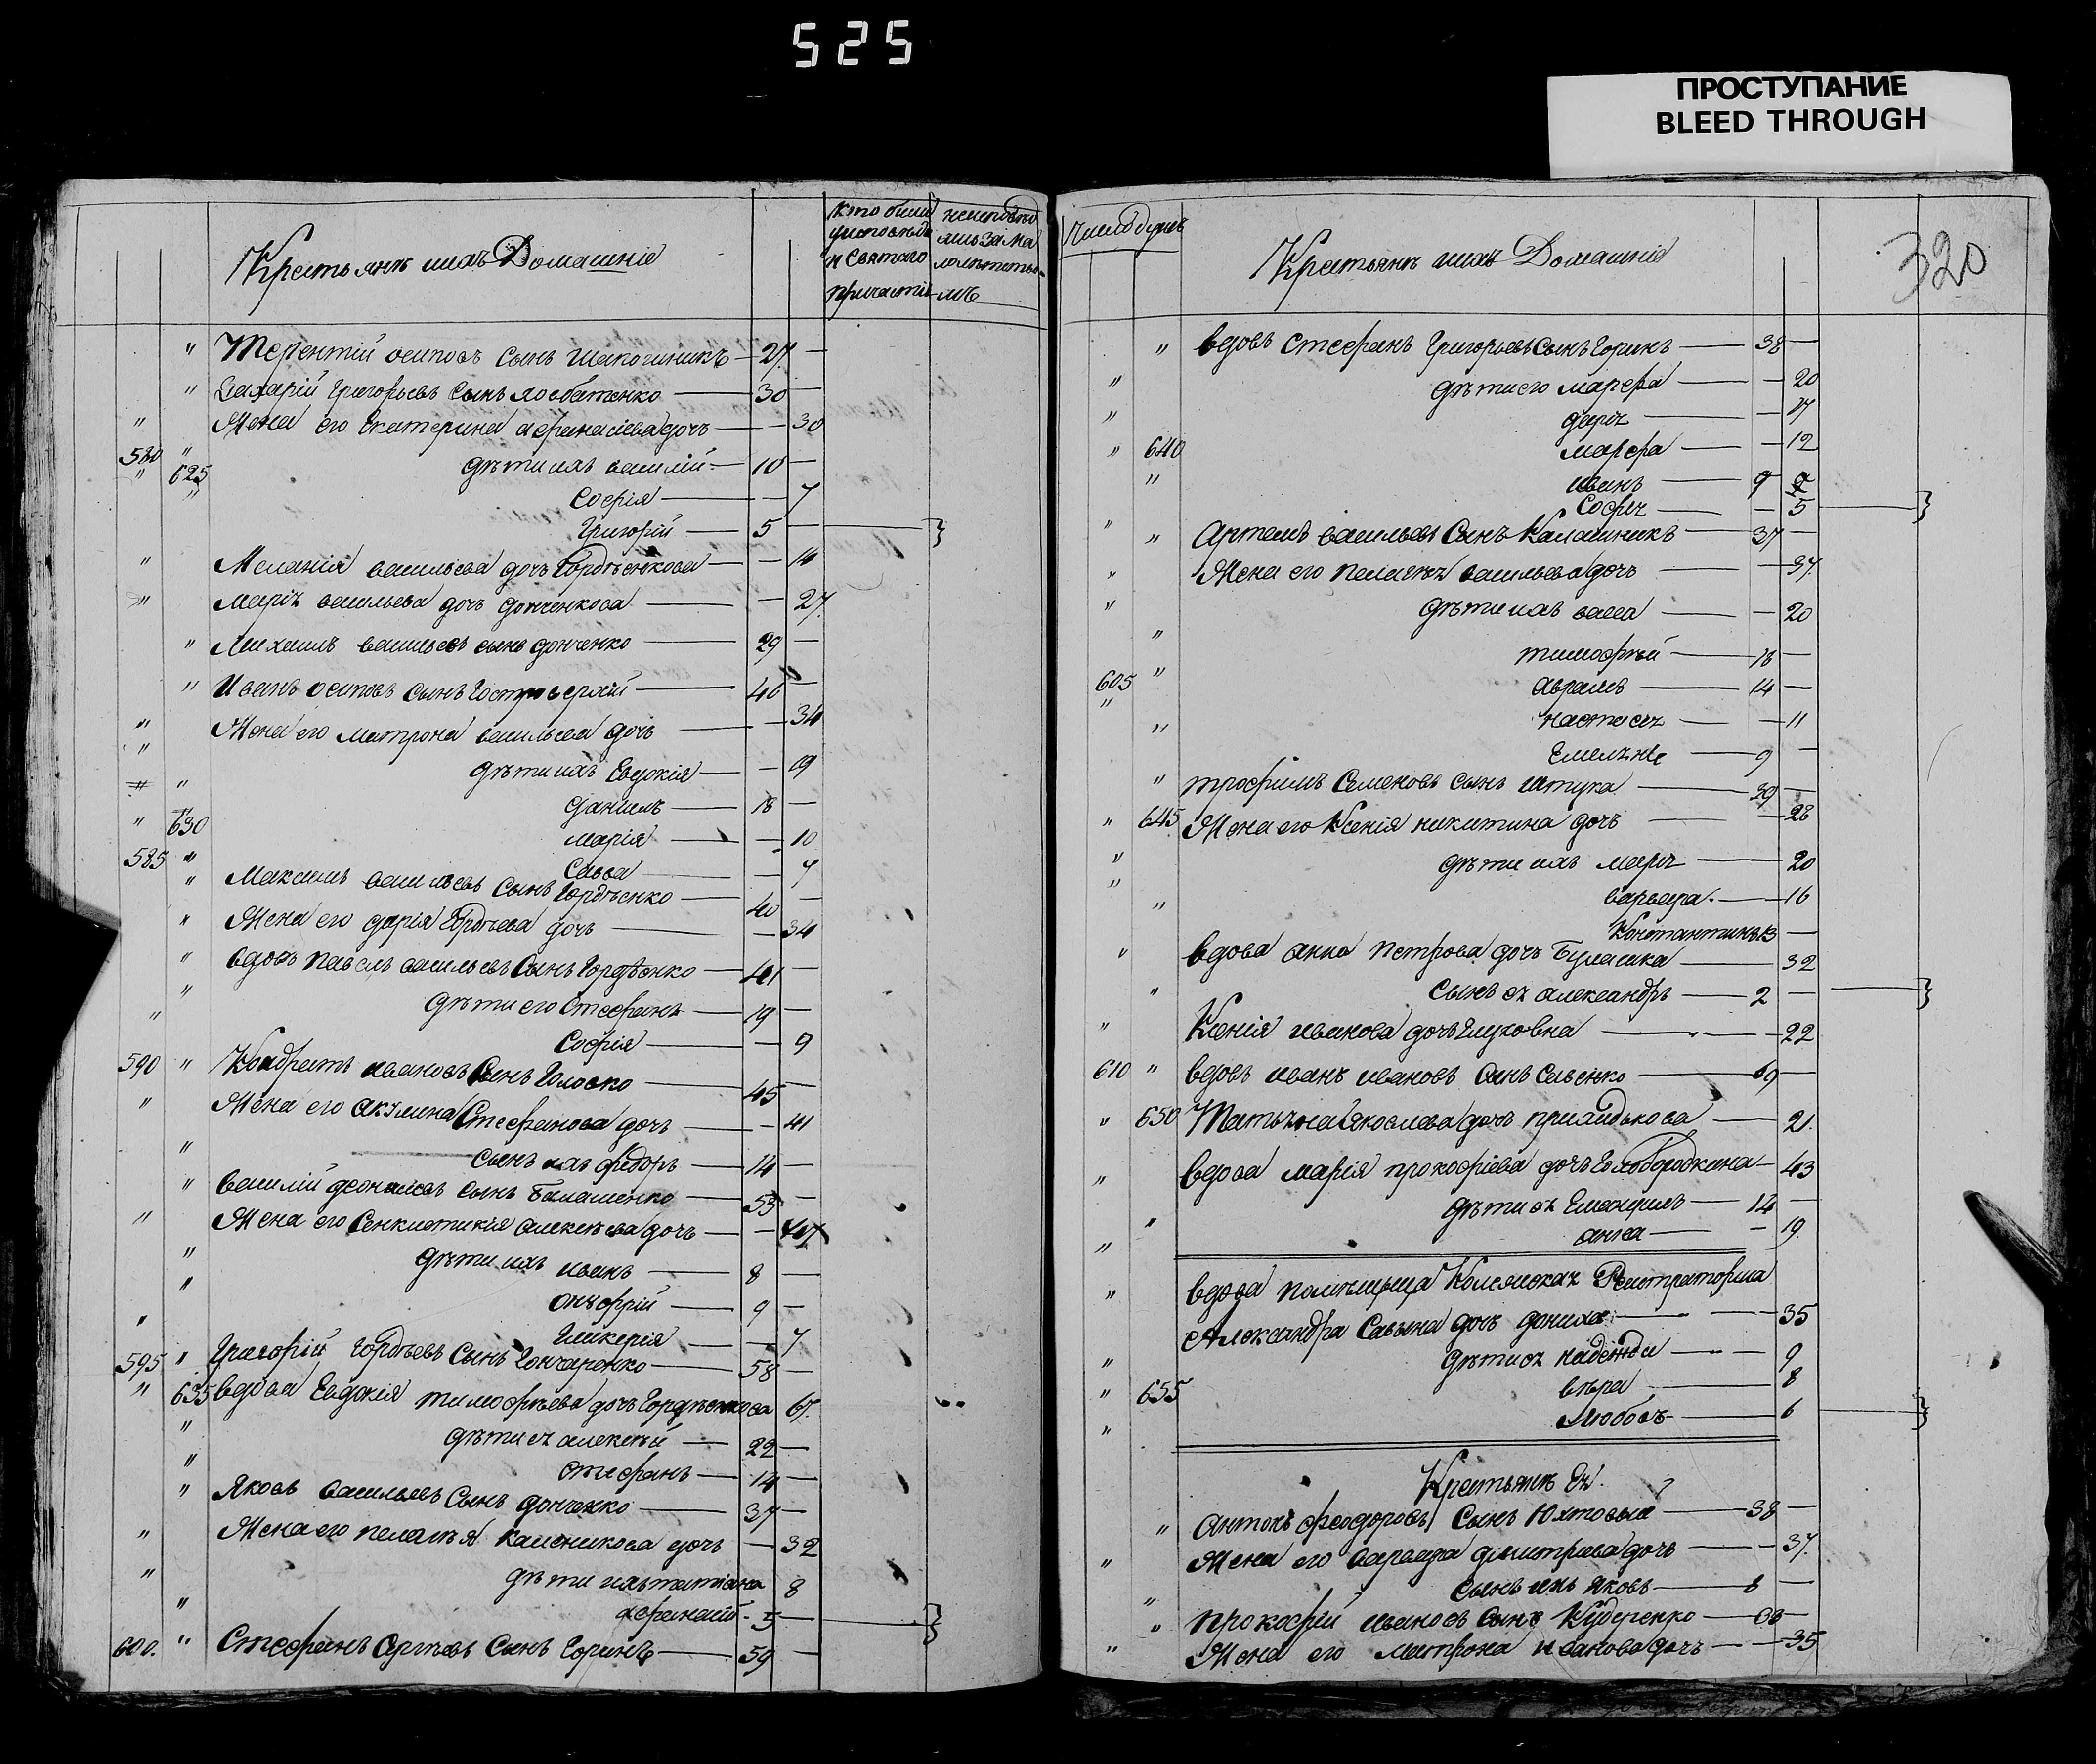 525
ПРОСТУПАНИЕ
BLEED THROUGH
320
Крестьянъ ихъ Домашніе
кто были
уисповѣди
и святаго
причастія
неисповѣдо
лись за ма
лолѣтство
мъ
" Терентій осиповъ сынъ 27. —
" Захарій Григорьевъ сынъ 30 —
" Жена его Екатерина афанасіева дочь — 30
580 " 625 дѣти ихъ василій — 10 —
" софія — — 7
Григорій — 5 —
" Меланія васильева дочь Гордѣенкова — — 14
" Марія васильева дочь донченкова — — 27.
" Михаилъ васильевъ сынъ донченко — 29 —
" Иванъ осиповъ сынъ 46 —
" Жена его матрона васильева дочь — — 34
" дѣти ихъ Евдокія — — 19
" даніилъ — 18 —
" 630 марія — — 10
585 " савва — — 7
" Максимъ васильевъ сынъ Гордѣенко — 40 —
" Жена его дарія Гордѣева дочь — — 34
" вдовъ павелъ васильевъ сынъ Гордѣенко — 41 —
" дѣти его Стефанъ — 19 —
" софія — — 9
590 " Кондратъ ивановъ сынъ Головко — 45 —
" Жена его акулина Стефанова дочь — — 41
" сынъ ихъ федоръ — 14 —
" василій сынъ 53 —
" Жена его алексѣева дочь — — 47
" дѣти ихъ иванъ — 8 —
" онуфрій — 9 —
" Гликерія — — 7
595 " Григорій Гордѣевъ сынъ Гончаренко — 58 —
" 635 вдова Евдокія тимофѣева дочь Гордѣенкова 67.
" дѣти ея алексѣй — 22 —
" стефанъ — 14 —
" Яковъ васильевъ сынъ донченко — 37 —
" Жена его пелагѣя дочь — 32
" дѣти ихъ татіана 8
" афанасій — 5 —
600. " Стефанъ сынъ Горинъ — 59 —
Число душъ
Крестьянъ ихъ Домашніе
" вдовъ стефанъ Григорьевъ сынъ Горинъ — 38 —
" дѣти его марфа — — 20
" дарія — — 17
" 640 марфа — — 12
" иванъ — 9
софія — — 5
" Артемъ васильевъ сынъ Калашникъ — 37 —
" Жена его пелагѣя васильева дочь — — 37.
" дѣти ихъ васса — — 20
" тимофѣй — 18 —
605 " аврамъ — 14 —
" настасія — — 11
" Емеліанъ — 9 —
" трофимъ Семеновъ сынъ штука — 39 —
" 645 Жена его Ксенія никитина дочь — — 28
" дѣти ихъ марія — 20
" варвара. — — 16
" Константинъ 13 —
" вдова анна петрова дочь — 32
" сынъ ея александръ — 2 —
" Ксенія иванова дочь — — 22
610 " вдовъ иванъ ивановъ сынъ Савенко — 69 —
" 650 Татьяна яковлева дочь — 21.
" вдова марія прокофіева дочь — 43
" дѣти ея Емануилъ — 14 —
" анна — — 19.
" вдова помѣщица Колежская Регистраторша
Александра Савына дочь — 35
" дѣти ея надежда — — 9
" 655 вѣра — 8
" Любовь — 6
Крестьянъ Ея.
" антонъ феодоровъ сынъ — 38 —
" Жена его варвара димитрiева дочь — — 37.
" сынъ ихъ яковъ — 8 —
" прокофій ивановъ сынъ —
" Жена его матрона иванова дочь — — 35